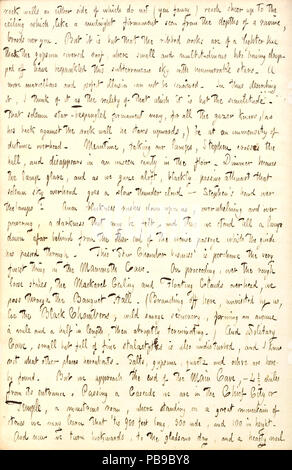 rock walls on either side of which do not, you fancy, reach sheer up to the
ceiling which like a midnight firmament seen from the depths of a ravine
bounds our view. But it is not that the ribbed rocks are of a lighter hue
that the gypsum covered roof where small and multitudinous bits having drop-
ped off have requited this subterranean sky with innumerable stars. A
more marvellous and perfect illusion can not be conceived. In thus describing
it, I think of it as the reality of that which it is but the similitude.
That solemn star-spangled firmament may, for all the gazer knows, (as
his back against the rock wall he stares upwards,) be at an immensity of
distance overhead. Meantime, taking our lamps, Stephen crosses the
hall, and disappears in an unseen cavity in the floor. Dimmer becomes
the lamps' glare, and as we gaze aloft, blackly passing athwart that
solemn sky overhead goes a slow thunder cloud — Stephen's hand over
the lamps! Anon blackness rushes down upon us, overwhelming and over
powering, a darkness that may be felt, and thus we stand till a lamp
dawns afar behind from the far end of the minor passage which the guide
has passed through. This Star Chamber business is perchance the very
finest thing in the Mammoth Cave. On proceeding, over the rough
loose rocks, the Mackerel Ceiling and Floating Clouds overhead, we
pass through the Banquet Hall, (Branching off here, unvisited by us,
lie the Black Chambers, wild savage scenery, forming an avenue
a mile and a half in length then abruptly terminating.) And Solitary
Cave, small but full of fine stalactites is also undisturbed, and I hear
but that other places aerobrates. Salts, gypsum, quartz and ochre are here-
in found. But we approach the end of the Main Cave, — 4 ½ miles
from its entrance. Passing a Cascade we are in the Chief City or
Temple, a monstrous room, where standing on a great mountain of
stones we may learn that tis 450 feet long, 300 wide, and 100 in height.
And now we turn homewards, to the gladsome day, and a hearty meal
PB9BY8